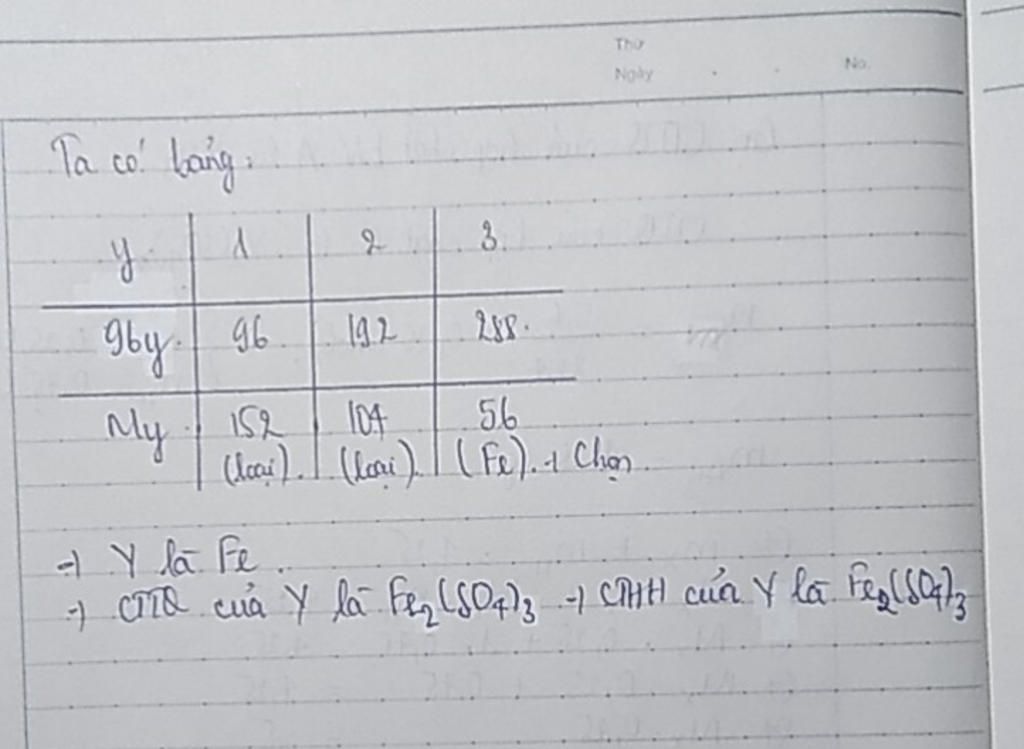 Thứ
Ngày No.
Ta có bảng:
y 1 2 3
96y 96 192 288
My 152 104 56
(loại) (loại) (Fe) → Chọn
→ Y là Fe.
→ CTTQ của Y là Fe₂(SO₄)₃ → CTHH của Y là Fe₂(SO₄)₃